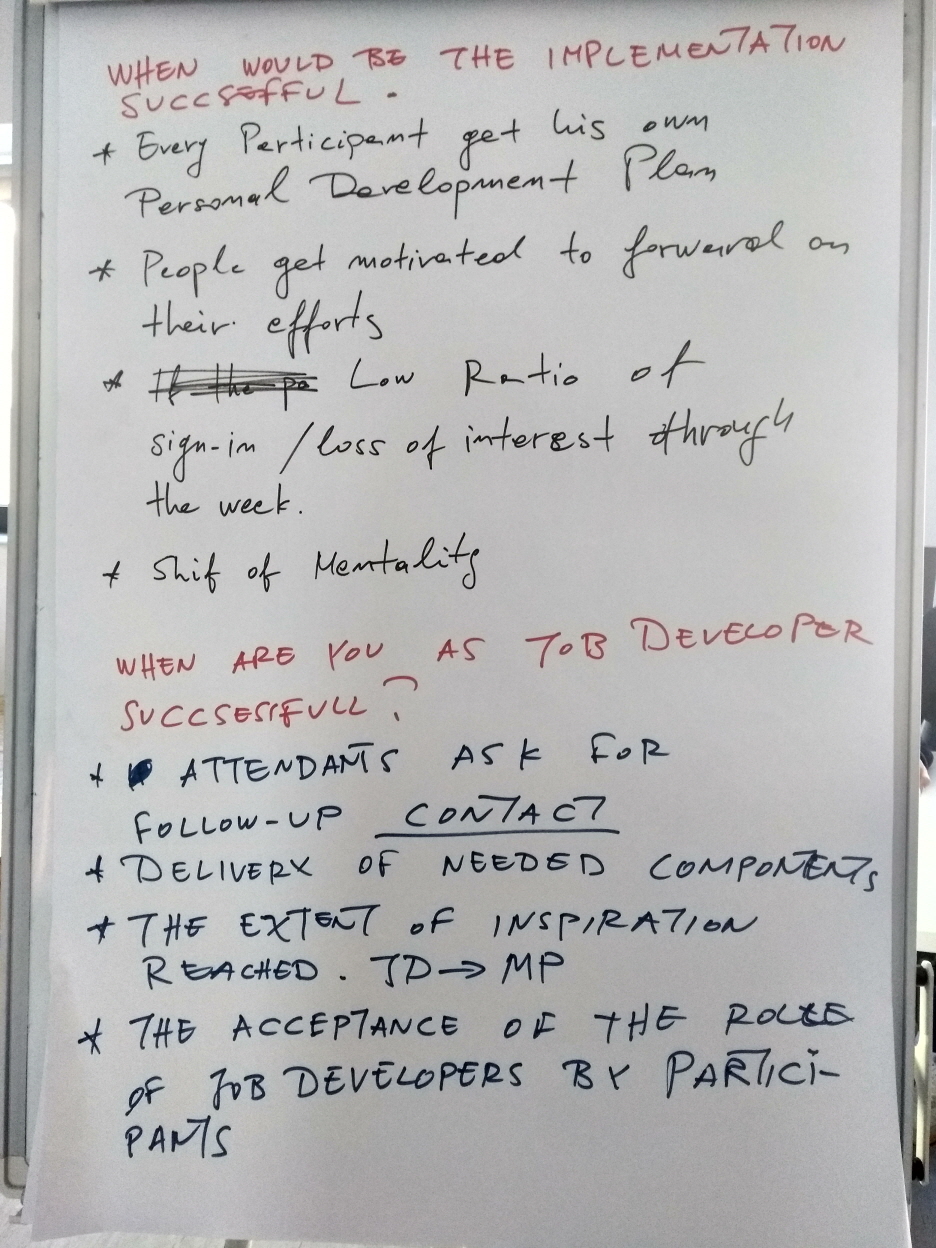 WHEN WOULD BE THE IMPLEMENTATION
SUCCSEFFUL.
* Every Participant get his own
Personal Development Plan
* People get motivated to forward on
their efforts
* If the pa Low Ratio of
sign-in /loss of interest through
the week.
* Shif of Mentality
WHEN ARE YOU AS JOB DEVELOPER
SUCCSESSFULL?
* ATTENDANTS ASK FOR
FOLLOW-UP CONTACT
* DELIVERY OF NEEDED COMPONENTS
* THE EXTENT OF INSPIRATION
REACHED. JD→MP
* THE ACCEPTANCE OF THE ROLE
OF JOB DEVELOPERS BY PARTICI-
PANTS